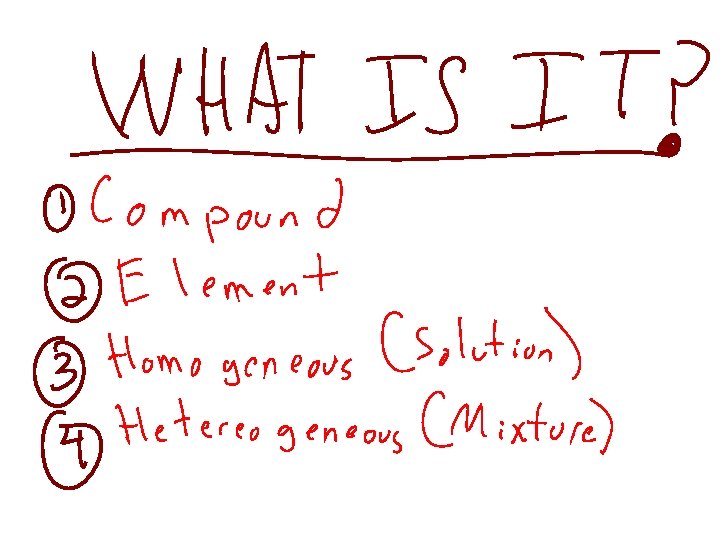 WHAT IS IT?
① Compound
② Element
③ Homogeneous (Solution)
④ Hetereogeneous (Mixture)